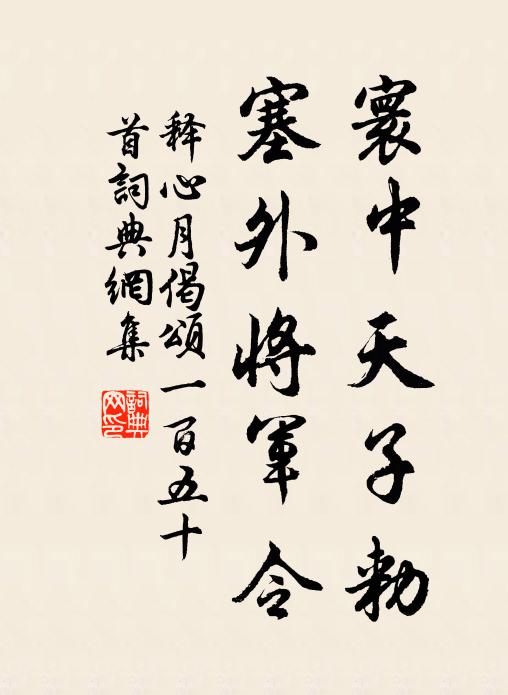 寰中天子勑
塞外將軍令
释心月偈頌一百五十
首詞典網集
詞典网印